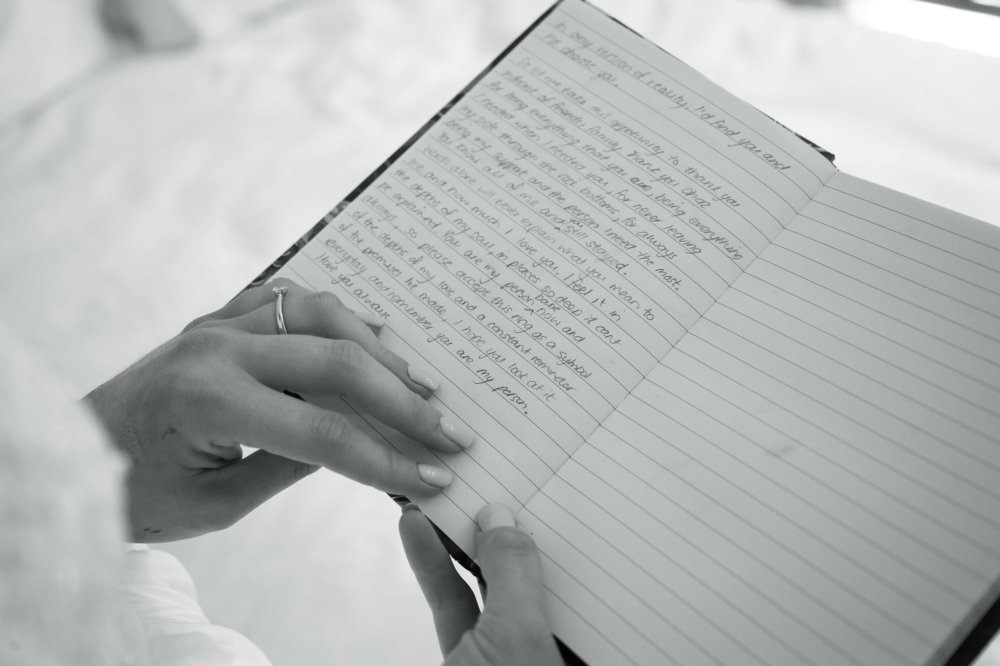 in any version of reality, I'd find you and
choose you.
So let me take this opportunity to thank you
infront of friends, family, thank you
for being everything that you are being everything
I needed when I needed you, for never leaving
my side through the rock bottoms, for always
being my support and the person I need the most.
You know all of me and you still stayed.
Words alone will never explain what you mean to
me and how much I love you. I feel it in
the depths of my soul, in places so deep it cant
be explained. You are my person babe now and
always, so please accept this ring as a symbol
of the depths of my love and a constant reminder
of the promises I've made, I hope you look at it
everyday and remember you are my person.
I love you always